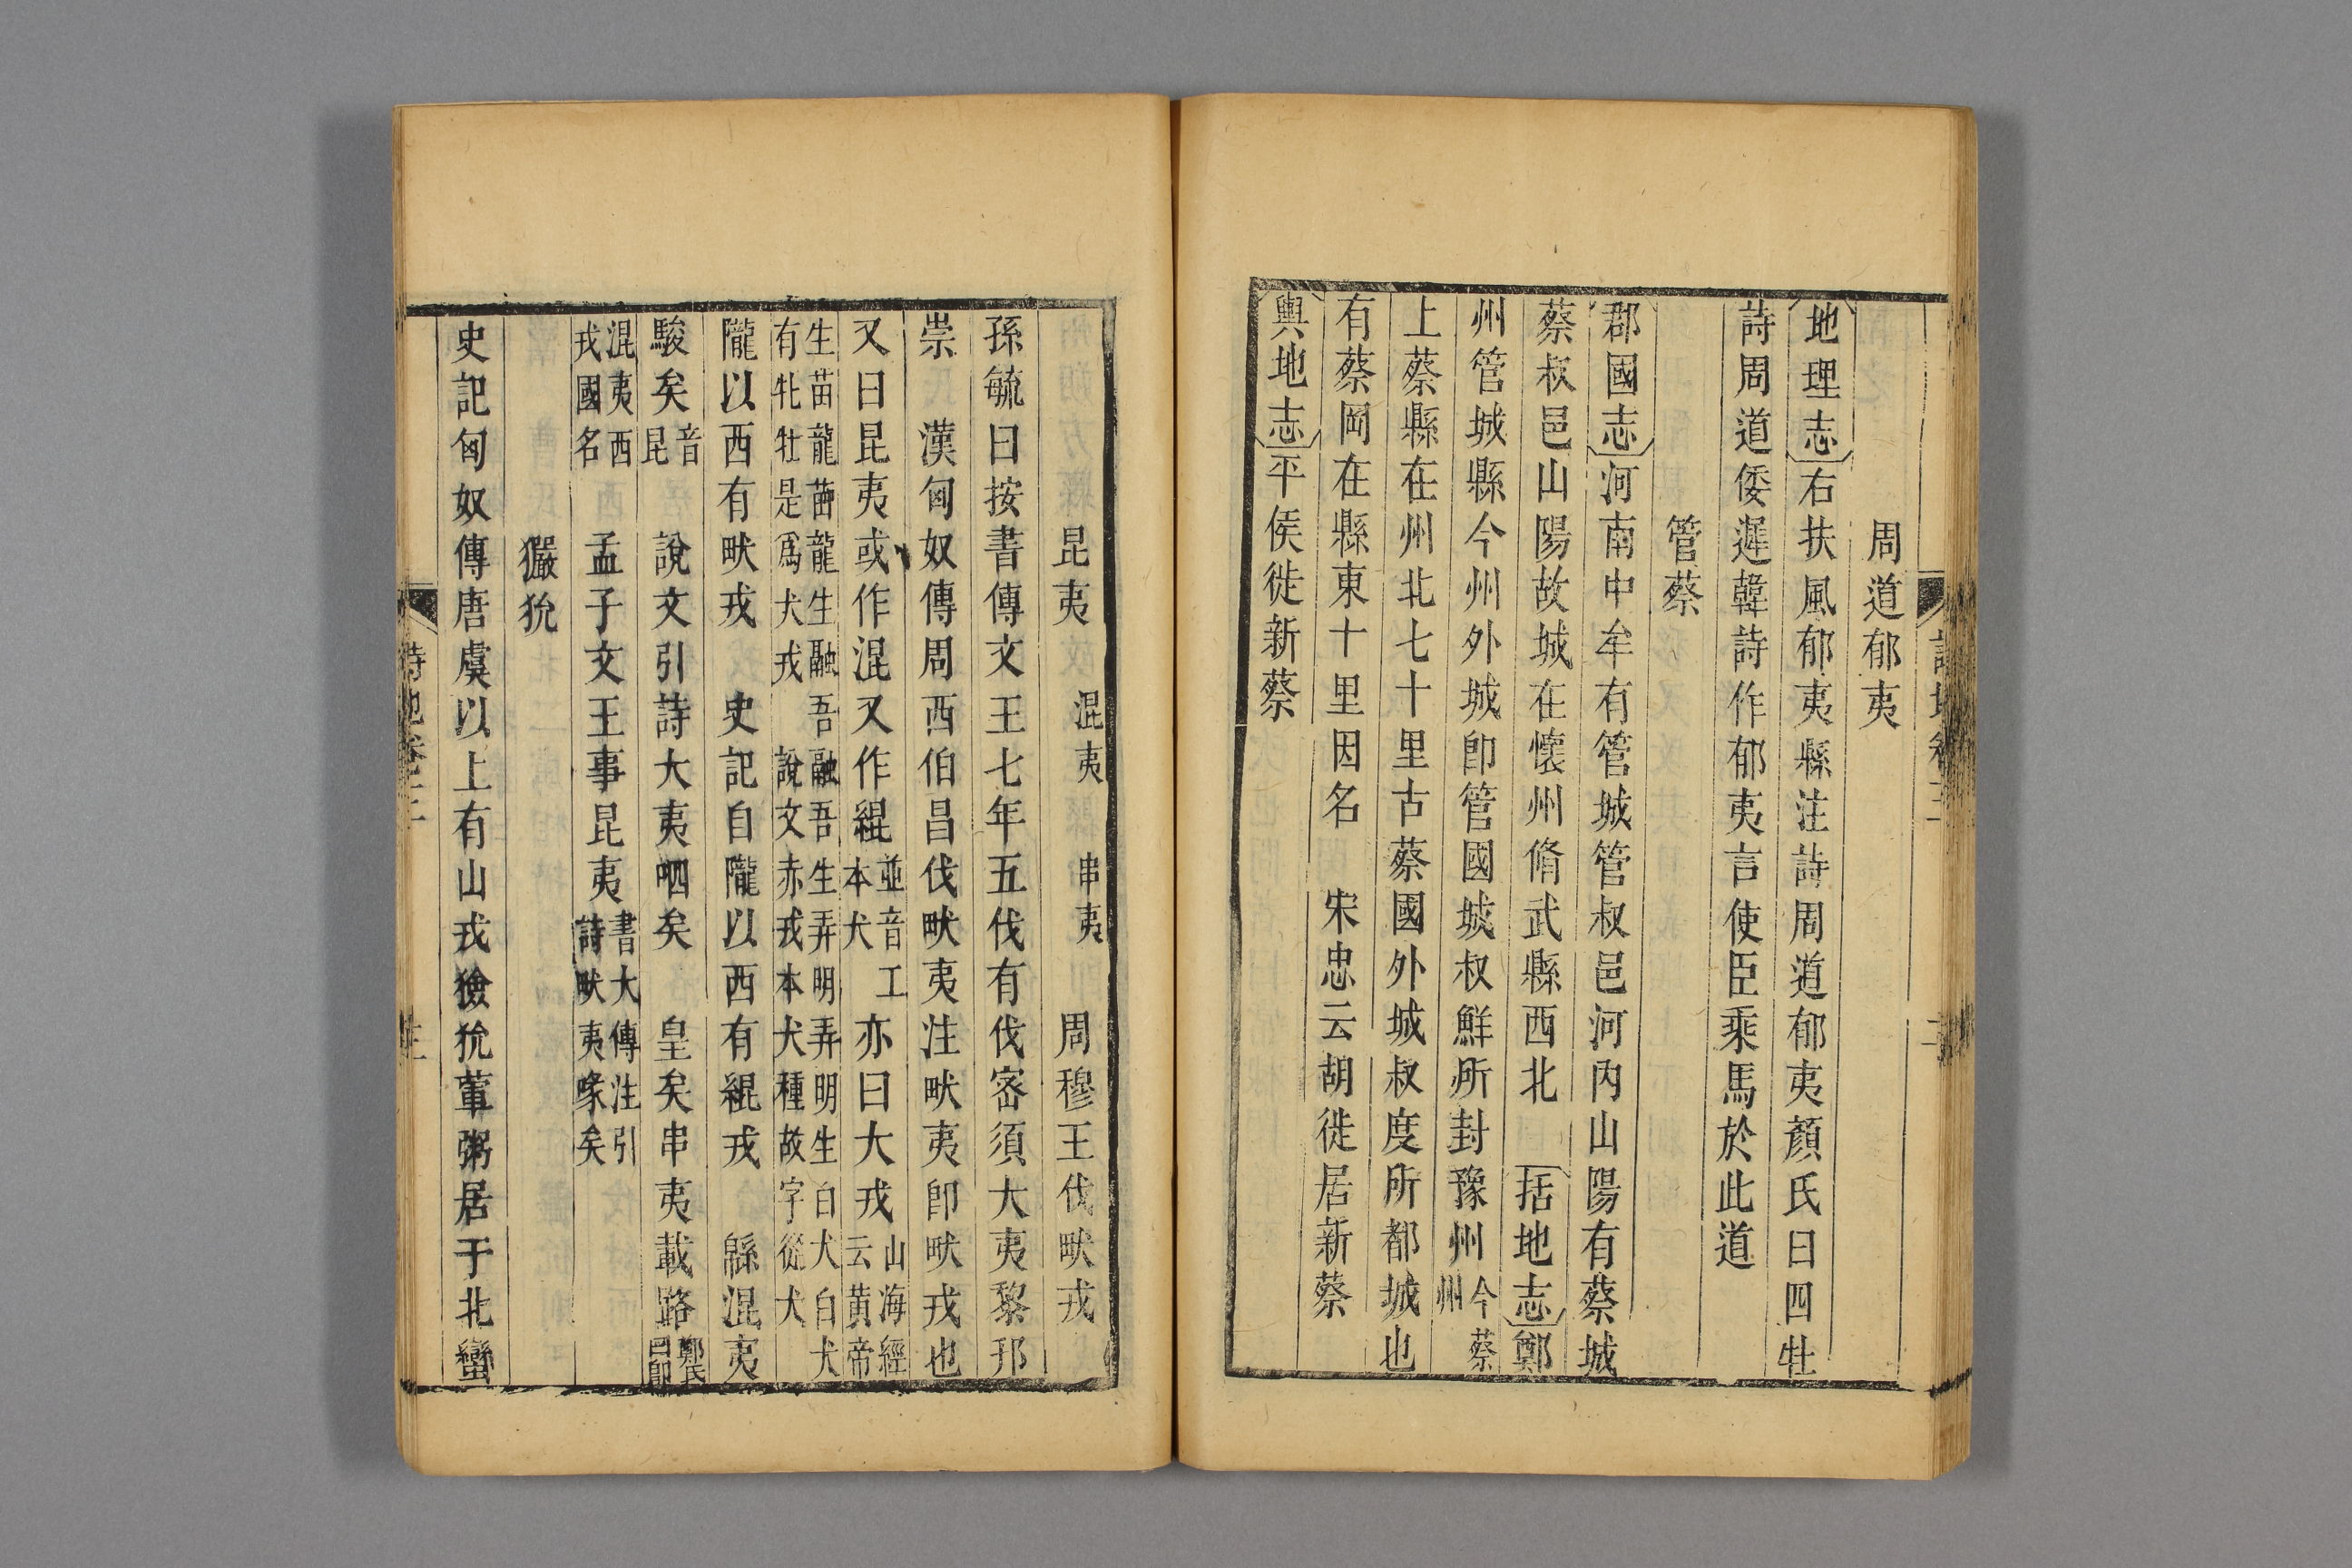 周道郁夷
地理志右扶風郁夷縣注詩周道郁夷顏氏曰四牡
詩周道倭遲韓詩作郁夷言使臣乘馬於此道
管蔡
郡國志河南中牟有管城管叔邑河内山陽有蔡城
蔡叔邑山陽故城在懷州脩武縣西北　括地志鄭
州管城縣今州外城卽管國城叔鮮所封豫州今蔡州
上蔡縣在州北七十里古蔡國外城叔度所都城也
有蔡岡在縣東十里因名　宋忠云胡徙居新蔡
輿地志平侯徙新蔡
昆夷　混夷　串夷　周穆王伐畎戎
孫毓曰按書傳文王七年五伐有伐宻須大夷黎邘
崇　漢匈奴傳周西伯昌伐畎夷注畎夷卽畎戎也
又曰昆夷或作混又作緄並音工本犬亦曰大戎山海經云黄帝
生苗龍苗龍生融吾融吾生弄明弄明生白犬白犬
有牝牡是爲犬戎　說文赤戎本犬種故字從犬
隴以西有畎戎　史記自隴以西有緄戎　緜混夷
駿矣音昆　說文引詩大夷呬矣　皇矣串夷載路鄭氏曰卽
混夷西戎國名　孟子文王事昆夷書大傳注引詩畎夷喙矣
玁狁
史記匈奴傳唐虞以上有山戎獫狁葷粥居于北蠻